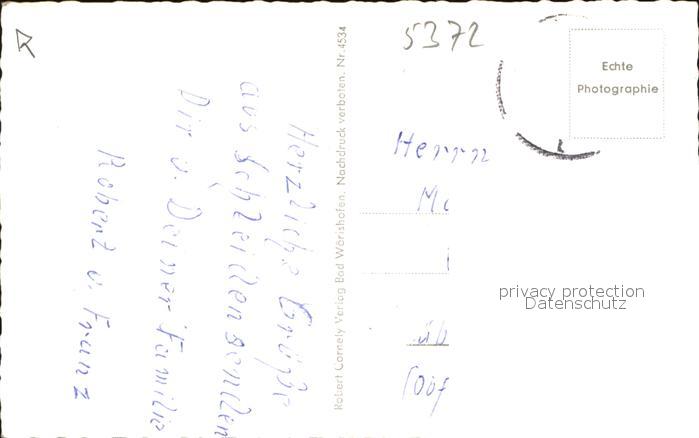 Herzliche Grüße
aus Scheidegg senden
Dir u. Deiner Familie
Robert u. Franz
Robert Cornely Verlag Bad Wörishofen. Nachdruck verboten. Nr. 4534
5372
Echte
Photographie
Herrn
privacy protection
Datenschutz